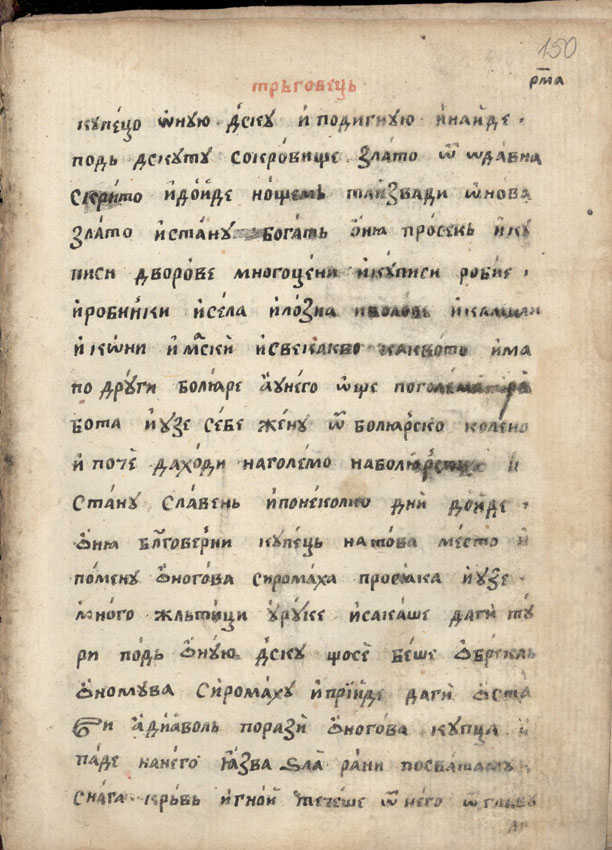 150
рм҃а
трьговець
купецо ѡ҆ную дску и҆ подигную и҆наи҆де ·
подь дскуту сокровище злато ѿ ѡ҆давна
скрито и҆дои҆де нощемь таи҆звади ѡ҆нова
злато и҆стану богать ѻ҆нꙗ просекь и҆ку
писи дворове многоцени и҆купи си робие ·
и҆робинки и҆села и҆лозиа и҆волове
и҆кѡни и҆ мⷭ҇ки и҆свекакво каквото и҆ма
по други болꙗре а҆унего ѡ҆ще поголема ра
бота и҆узе себе жену ѿ болꙗрско колено
и҆ поче даходи наголемо и҆
стану славень и҆понеколко дни дои҆де ·
ѻ҆нꙗ бл҃говерни купець натова место и҆
помену ѻ҆ногова сиромаха просꙗка и҆узе ·
много жльтици у҆руке и҆сакаше даги ту
ри подь ѻ҆ную дску щосе беше ѻ҆брекль
ѻ҆номува сиромаху и҆прїиде даги ѻ҆ста
ви а҆диꙗволь порази ѻ҆ногова купца и҆
паде нанего ꙗ҆зва ѕла рани
снага крьвь и҆гнои течеше ѿ него ѿ